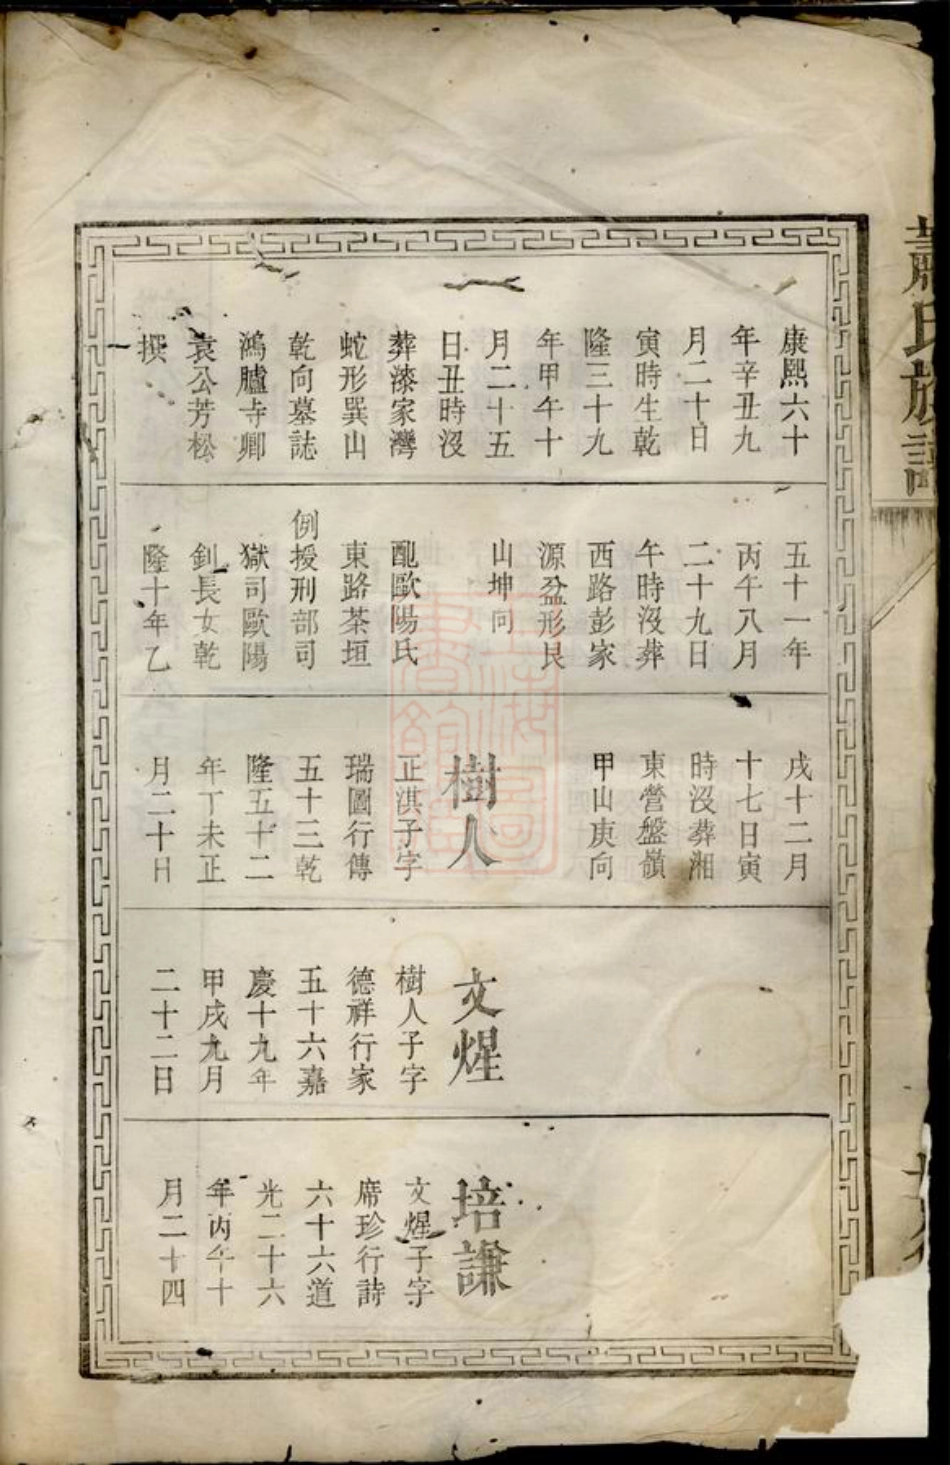 蕭氏族譜
康熙六十
年辛丑九
月二十日
寅時生乾
隆三十九
年甲午十
月二十五
日丑時沒
葬漆家灣
蛇形巽山
乾向墓誌
鴻臚寺卿
袁公芳松
撰
五十一年
丙午八月
二十九日
午時沒葬
西路彭家
源盆形艮
山坤向
配歐陽氏
東路茶垣
例授刑部司
獄司歐陽
釗長女乾
隆十年乙
戌十二月
十七日寅
時沒葬湘
東營盤嶺
甲山庚向
樹人
正淇子字
瑞圖行傳
五十三乾
隆五十二
年丁未正
月二十日
文煋
樹人子字
德祥行家
五十六嘉
慶十九年
甲戌九月
二十二日
培謙
文煋子字
席珍行詩
六十六道
光二十六
年丙午十
月二十四